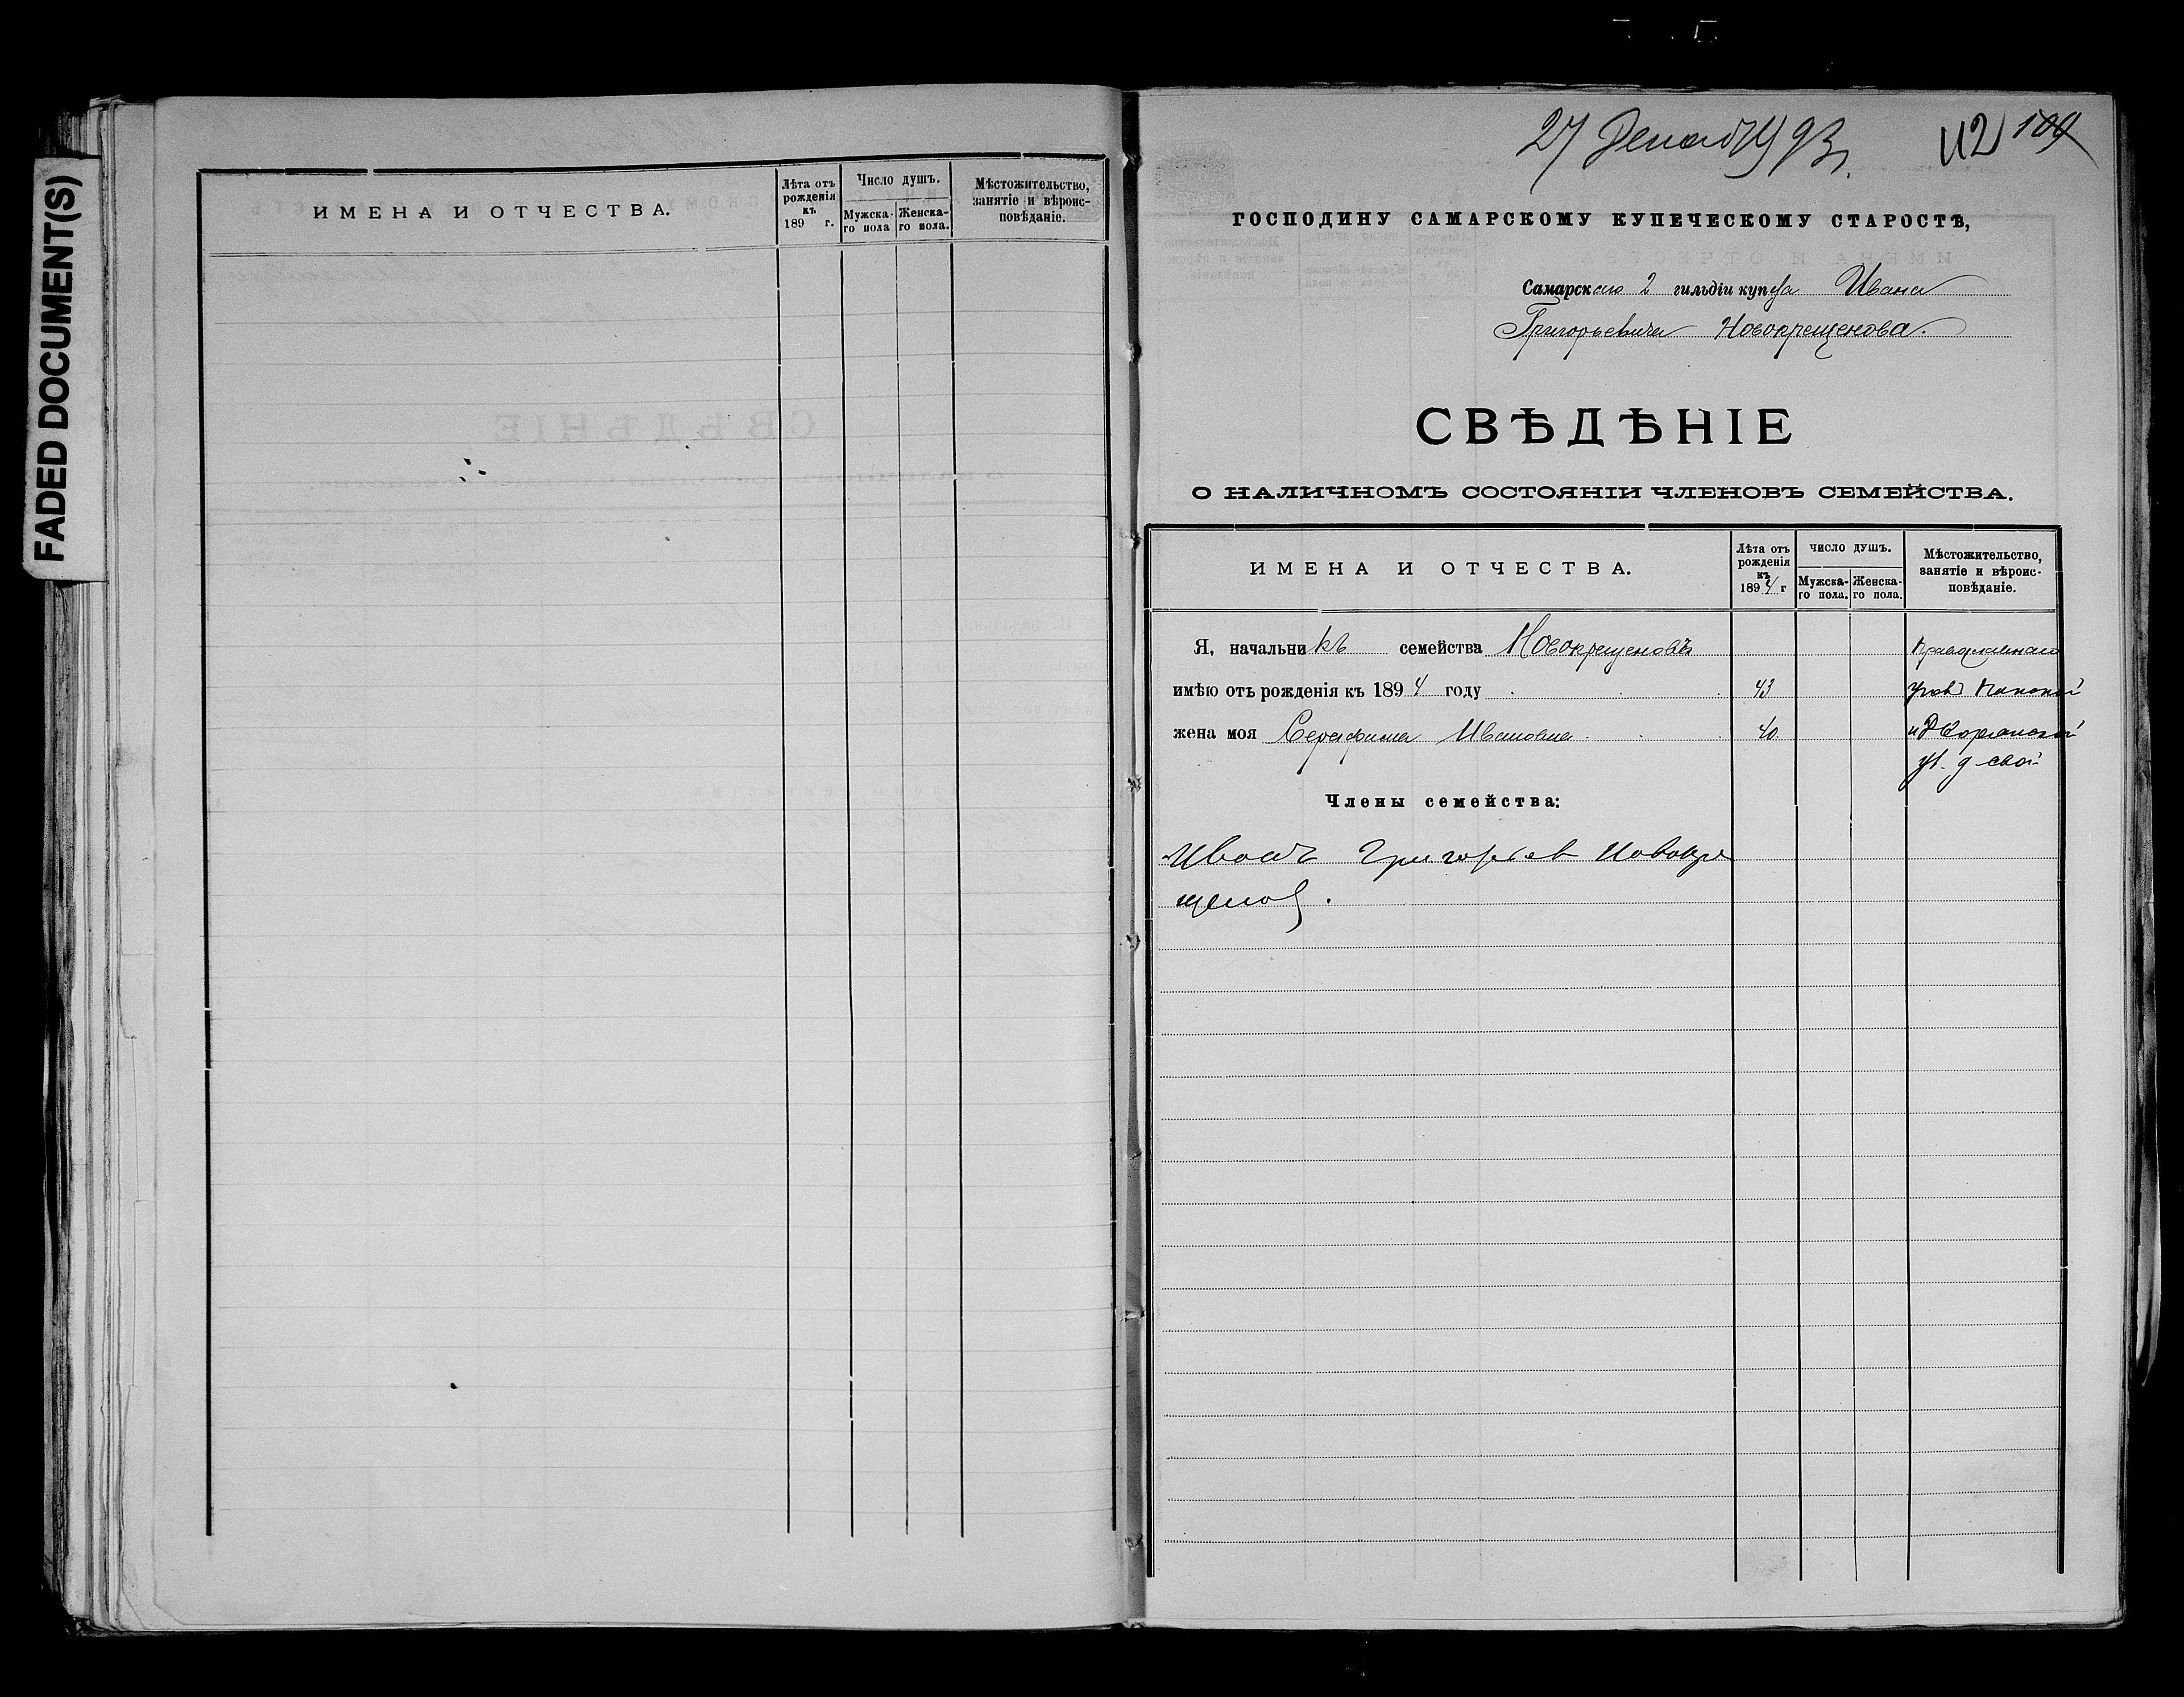 FADED DOCUMENT(S)
ИМЕНА И ОТЧЕСТВА.
Лѣта отъ рожденія къ 189 г.
Число душъ.
Мужска-го пола
Женска-го пола.
Мѣстожительство, занятіе и вѣроис-повѣданіе.
27 Декаб 93
112 109
ГОСПОДИНУ САМАРСКОМУ КУПЕЧЕСКОМУ СТАРОСТѢ,
Самарскаго 2 гильдіи купца Ивана
Григорьевича Новокрещенова.
СВѢДѢНІЕ
О НАЛИЧНОМЪ СОСТОЯНІИ ЧЛЕНОВЪ СЕМЕЙСТВА.
ИМЕНА И ОТЧЕСТВА.
Лѣта отъ рожденія къ 1894 г
ЧИСЛО ДУШЪ.
Мужска-го пола.
Женска-го пола.
Мѣстожительство, занятіе и вѣроис-повѣданіе.
Я, начальникъ семейства Новокрещеновъ Православнаго
имѣю отъ рожденія къ 1894 году 43
жена моя Серафима Ивановна 40 и Дворянской
Члены семейства:
Иванъ Григорьев Новокре
щенов.